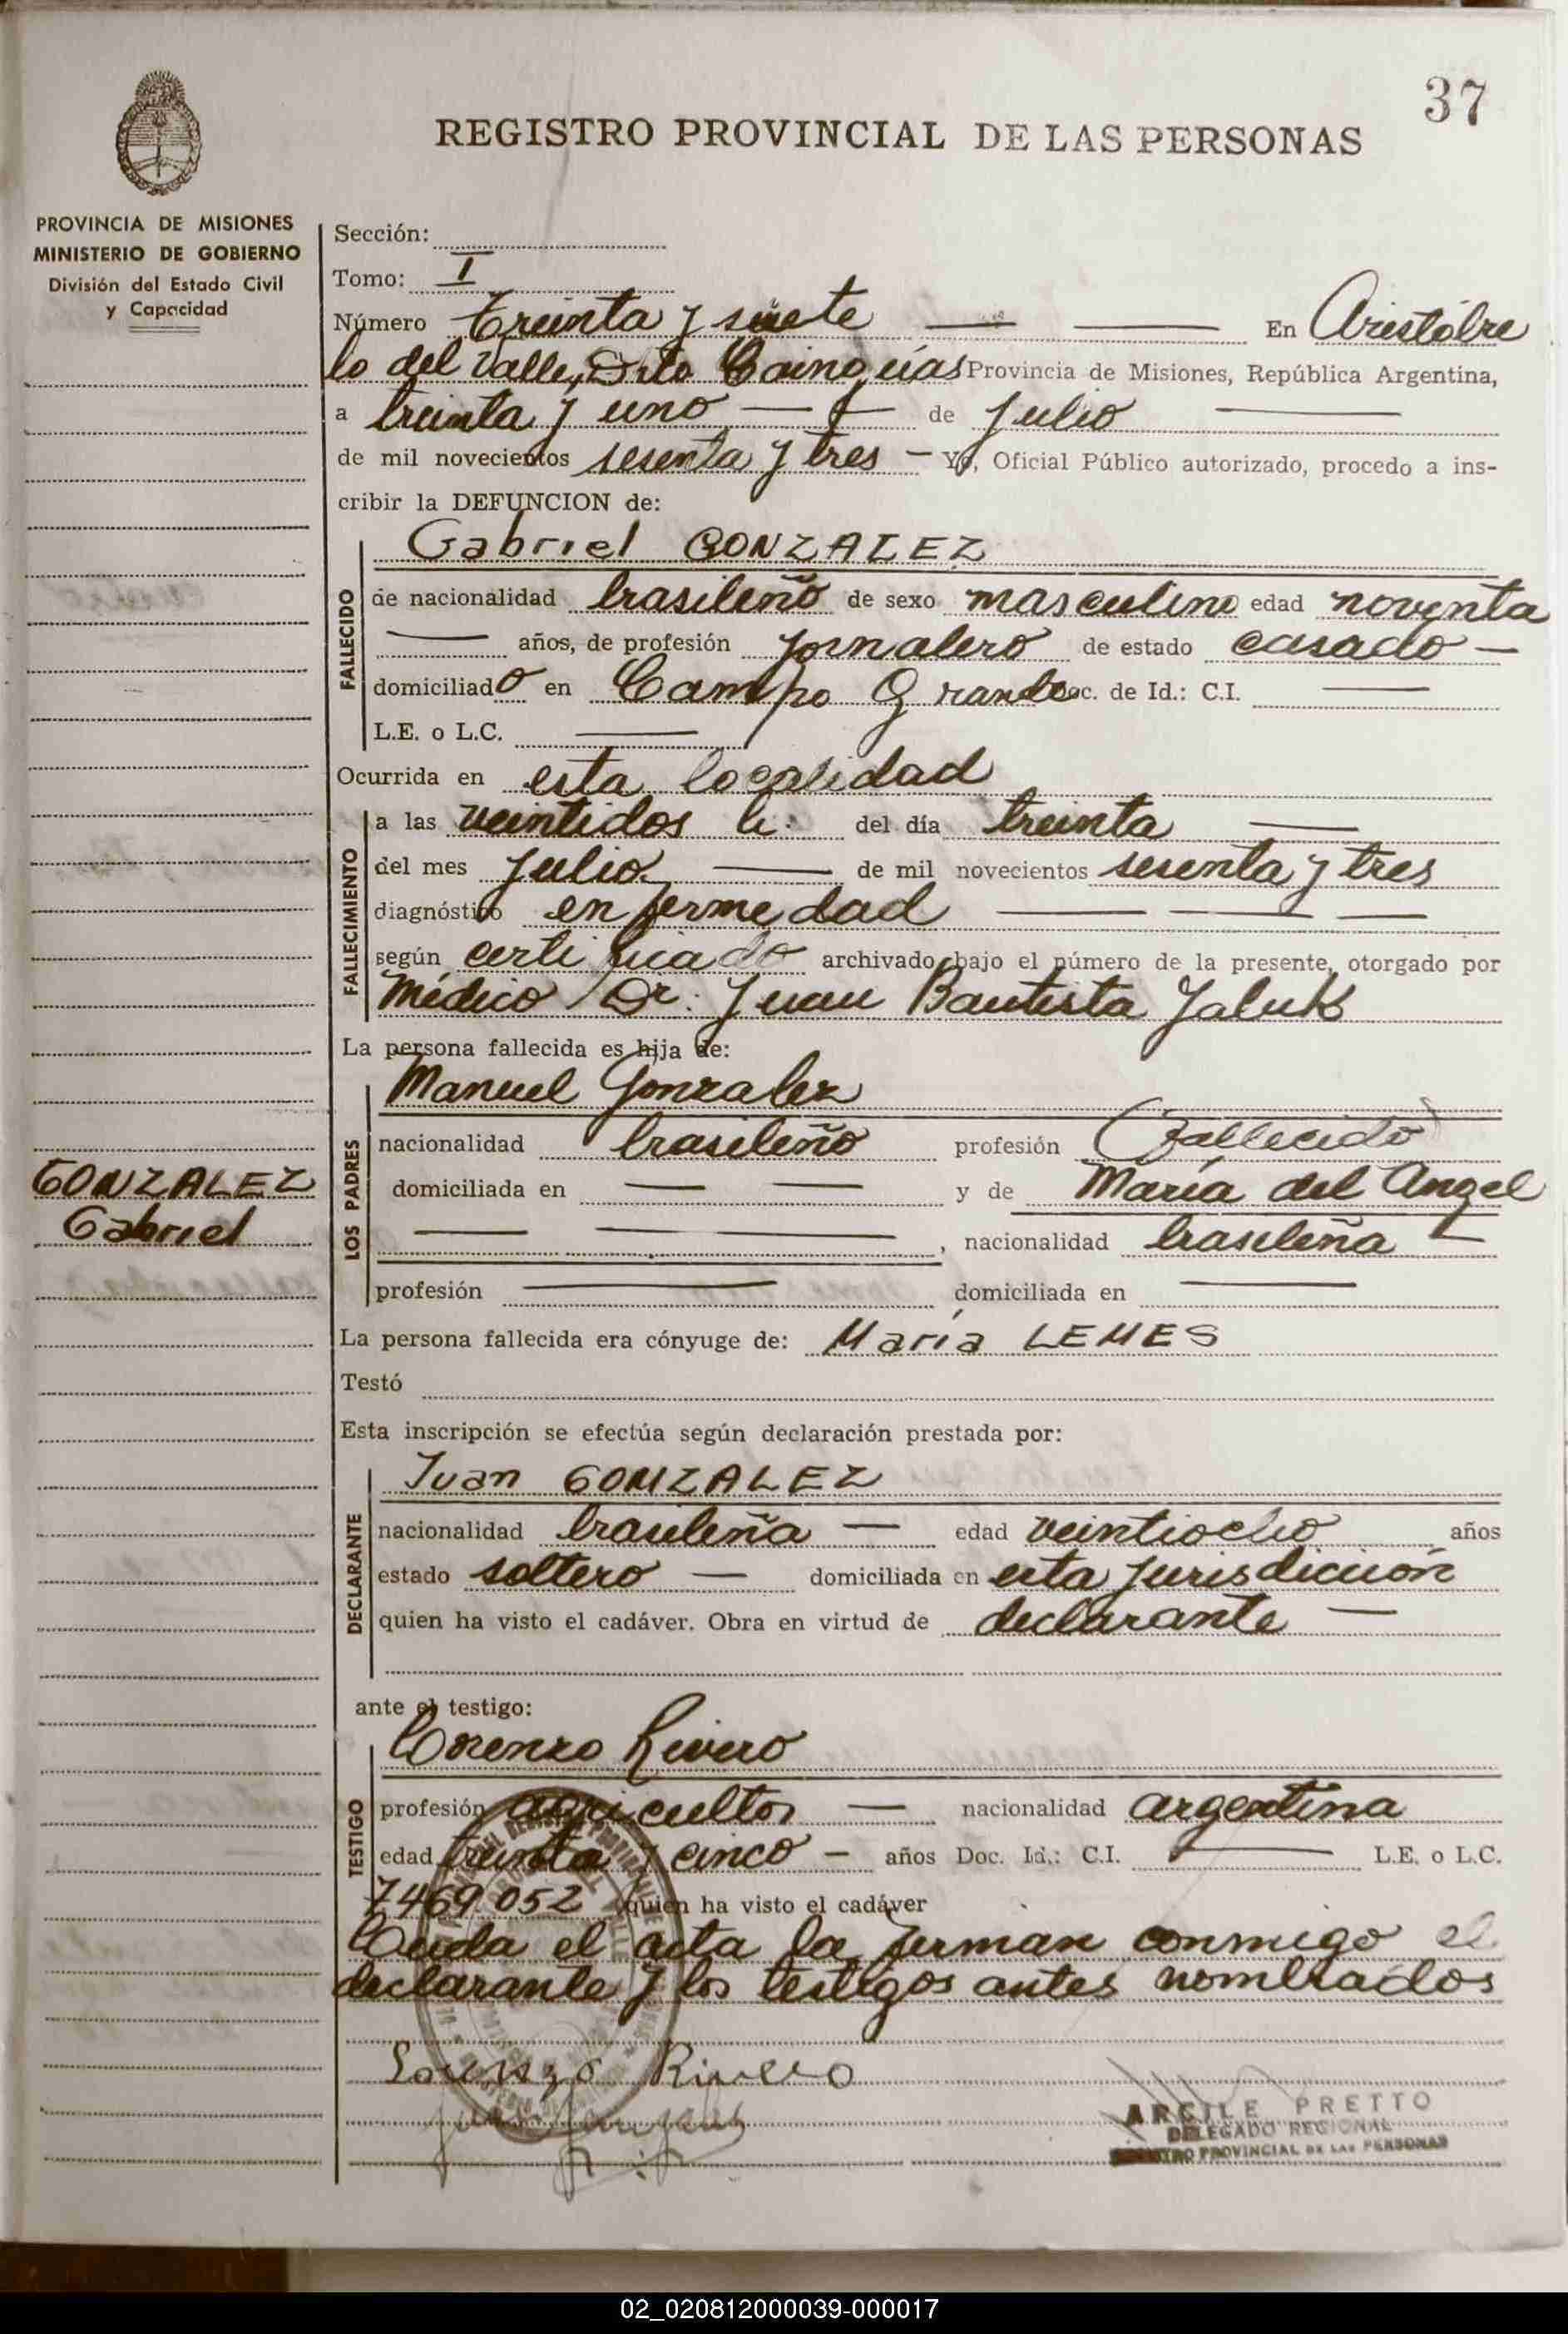 37
REGISTRO PROVINCIAL DE LAS PERSONAS
PROVINCIA DE MISIONES
MINISTERIO DE GOBIERNO
División del Estado Civil
y Capacidad
Sección:
Tomo: I
Número Treinta y siete En Aristóbu
lo del Valle, Dto Cainguás Provincia de Misiones, República Argentina,
a treinta y uno de Julio
de mil novecientos sesenta y tres Yo, Oficial Público autorizado, procedo a ins-
cribir la DEFUNCION de:
Gabriel GONZALEZ
FALLECIDO
de nacionalidad brasileño de sexo masculino edad noventa
años, de profesión Jornalero de estado casado
domiciliado en Campo Grande Doc. de Id.: C.I.
L.E. o L.C.
Ocurrida en esta localidad
FALLECIMIENTO
a las veintidos h. del día treinta
del mes Julio de mil novecientos sesenta y tres
diagnóstico enfermedad
según certificado archivado bajo el número de la presente, otorgado por
Médico Dr. Juan Bautista Jaluk
La persona fallecida es hija de:
LOS PADRES
Manuel Gonzalez
nacionalidad brasileño profesión (Fallecido)
domiciliada en y de María del Angel
, nacionalidad brasileña
profesión domiciliada en
GONZALEZ
Gabriel
La persona fallecida era cónyuge de: María LEMES
Testó
Esta inscripción se efectúa según declaración prestada por:
DECLARANTE
Juan GONZALEZ
nacionalidad brasileña edad veintiocho años
estado soltero domiciliada en esta Jurisdicción
quien ha visto el cadáver. Obra en virtud de declarante
ante el testigo:
TESTIGO
Lorenzo Rivero
profesión agricultor nacionalidad argentina
edad treinta y cinco años Doc. Id.: C.I. L.E. o L.C.
7469.052 quien ha visto el cadáver
Leida el acta la firman conmigo el
declarante y los testigos antes nombrados
Lorenzo Rivero
ARCILE PRETTO
DELEGADO REGIONAL
REGISTRO PROVINCIAL DE LAS PERSONAS
02_020812000039-000017